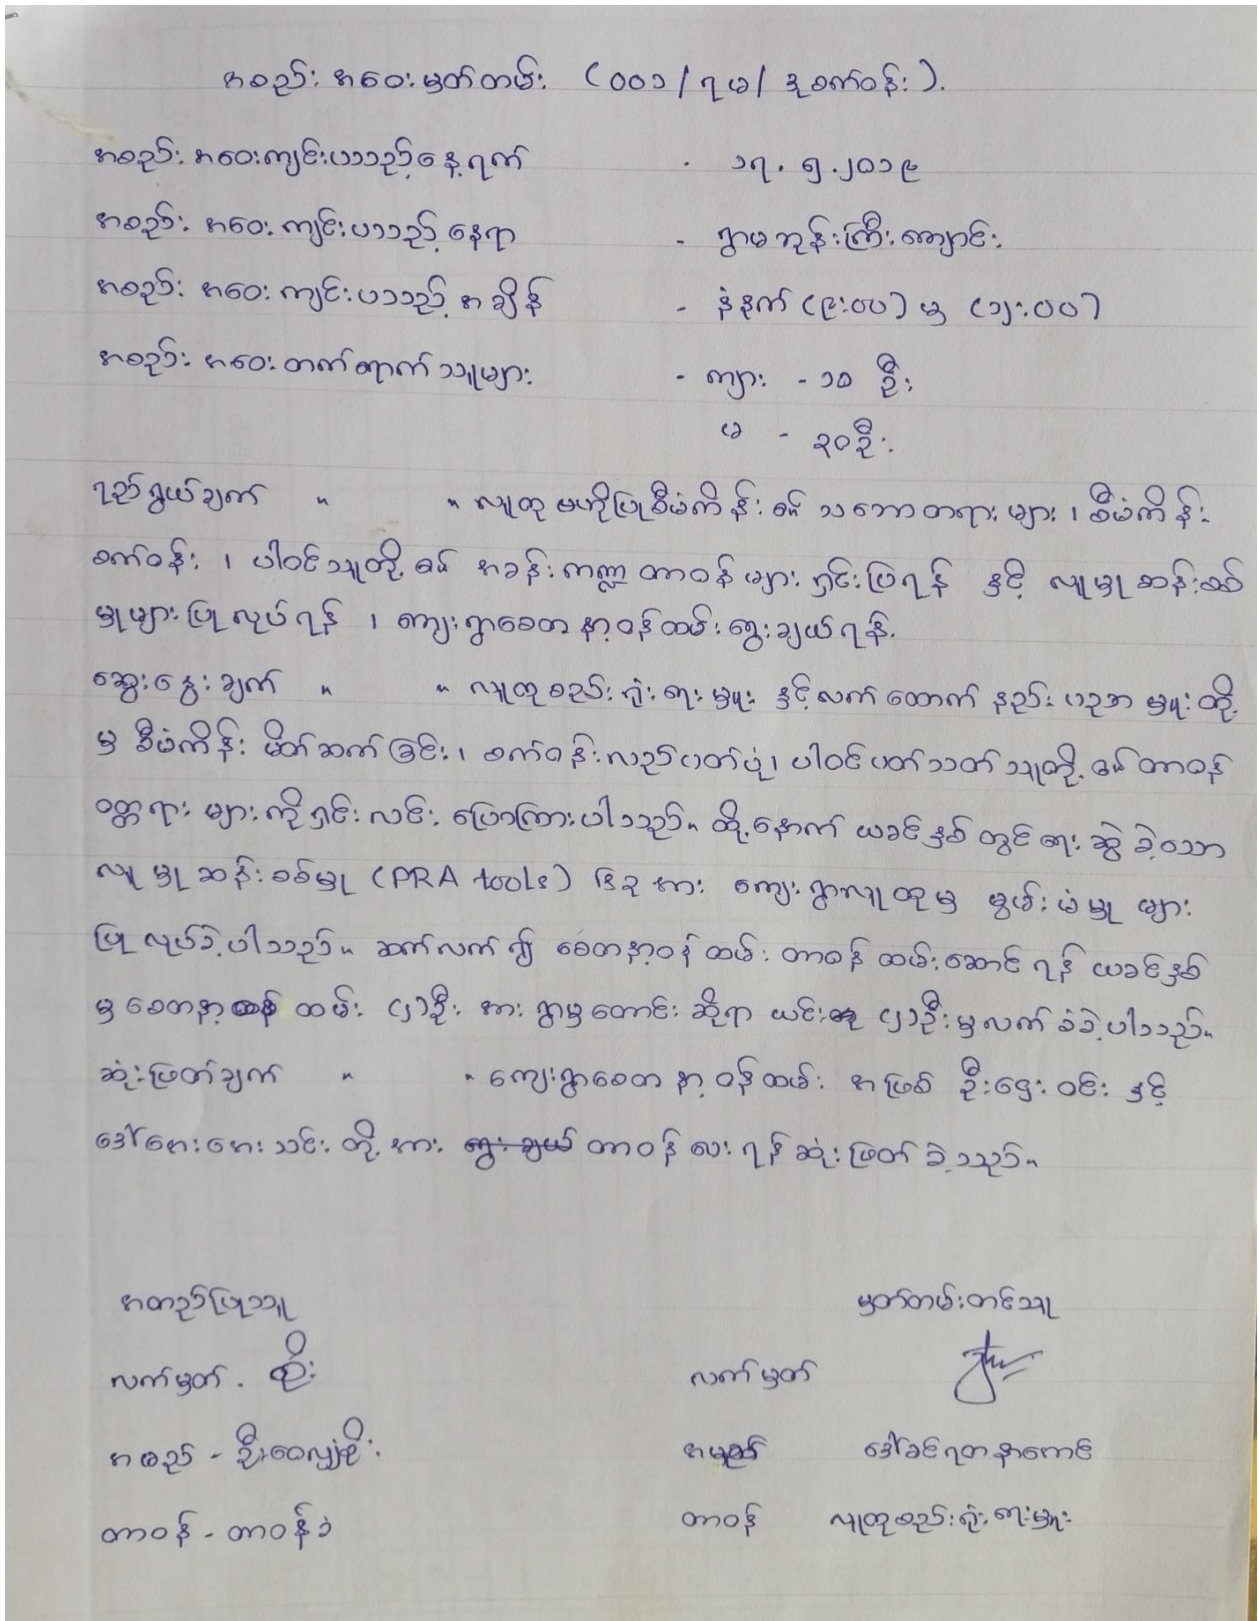 အစည်းအဝေးမှတ်တမ်း (၀၀၁/ရမ/ဒုစက်ဝန်း).
အစည်းအဝေးကျင်းပသည့်နေ့ရက် - ၁၇.၅.၂၀၁၉
အစည်းအဝေးကျင်းပသည့်နေရာ - ရွာမဘုန်းကြီးကျောင်း
အစည်းအဝေးကျင်းပသည့်အချိန် - နံနက် (၉:၀၀) မှ (၁၂:၀၀)
အစည်းအဝေးတက်ရောက်သူများ - ကျား - ၁၈ ဦး
မ - ၃၀ဦး
ရည်ရွယ်ချက် ။ ။ လူထုဗဟိုပြုစီမံကိန်း၏ သဘောတရားများ၊ စီမံကိန်း
စက်ဝန်း၊ ပါဝင်သူတို့၏ အခန်းကဏ္ဍတာဝန်များ ရှင်းပြရန် နှင့် လူမှုဆန်းစစ်
မှုများပြုလုပ်ရန်၊ ကျေးရွာစေတနာ့ဝန်ထမ်းရွေးချယ်ရန်.
ဆွေးနွေးချက် ။ ။ လူထုစည်းရုံးရေးမှူး နှင့်လက်ထောက် နည်းပညာမှူးတို့
မှ စီမံကိန်း မိတ်ဆက်ခြင်း၊ စက်ဝန်းလည်ပတ်ပုံ၊ ပါဝင်ပတ်သတ်သူတို့၏တာဝန်
ဝတ္တရားများကိုရှင်းလင်းပြောကြားပါသည်။ ထို့နောက် ယခင်နှစ်တွင်ရေးဆွဲခဲ့သော
လူမှုဆန်းစစ်မှု (PRA tools) ၆ခုအား ကျေးရွာလူထုမှ မွမ်းမံမှုများ
ပြုလုပ်ခဲ့ပါသည်။ ဆက်လက်၍ စေတနာ့ဝန်ထမ်း တာဝန်ထမ်းဆောင်ရန် ယခင်နှစ်
မှစေတနာ့ဝန်ထမ်း (၂)ဦးအား ရွာမှတောင်းဆိုရာ ယင်း (၂)ဦးမှလက်ခံခဲ့ပါသည်။
ဆုံးဖြတ်ချက် ။ ။ ကျေးရွာစေတနာ့ဝန်ထမ်းအဖြစ် ဦးဌေးဝင်း နှင့်
ဒေါ်အေးအေးသင်းတို့အား ရွေးချယ် တာဝန်ပေးရန်ဆုံးဖြတ်ခဲ့သည်။
အတည်ပြုသူ မှတ်တမ်းတင်သူ
လက်မှတ်. စိုး လက်မှတ်
အမည် - ဦးဝေလျှံစိုး အမည် ဒေါ်ခင်ရတနာအောင်
တာဝန် - တာဝန်ခံ တာဝန် လူထုစည်းရုံးရေးမှူး